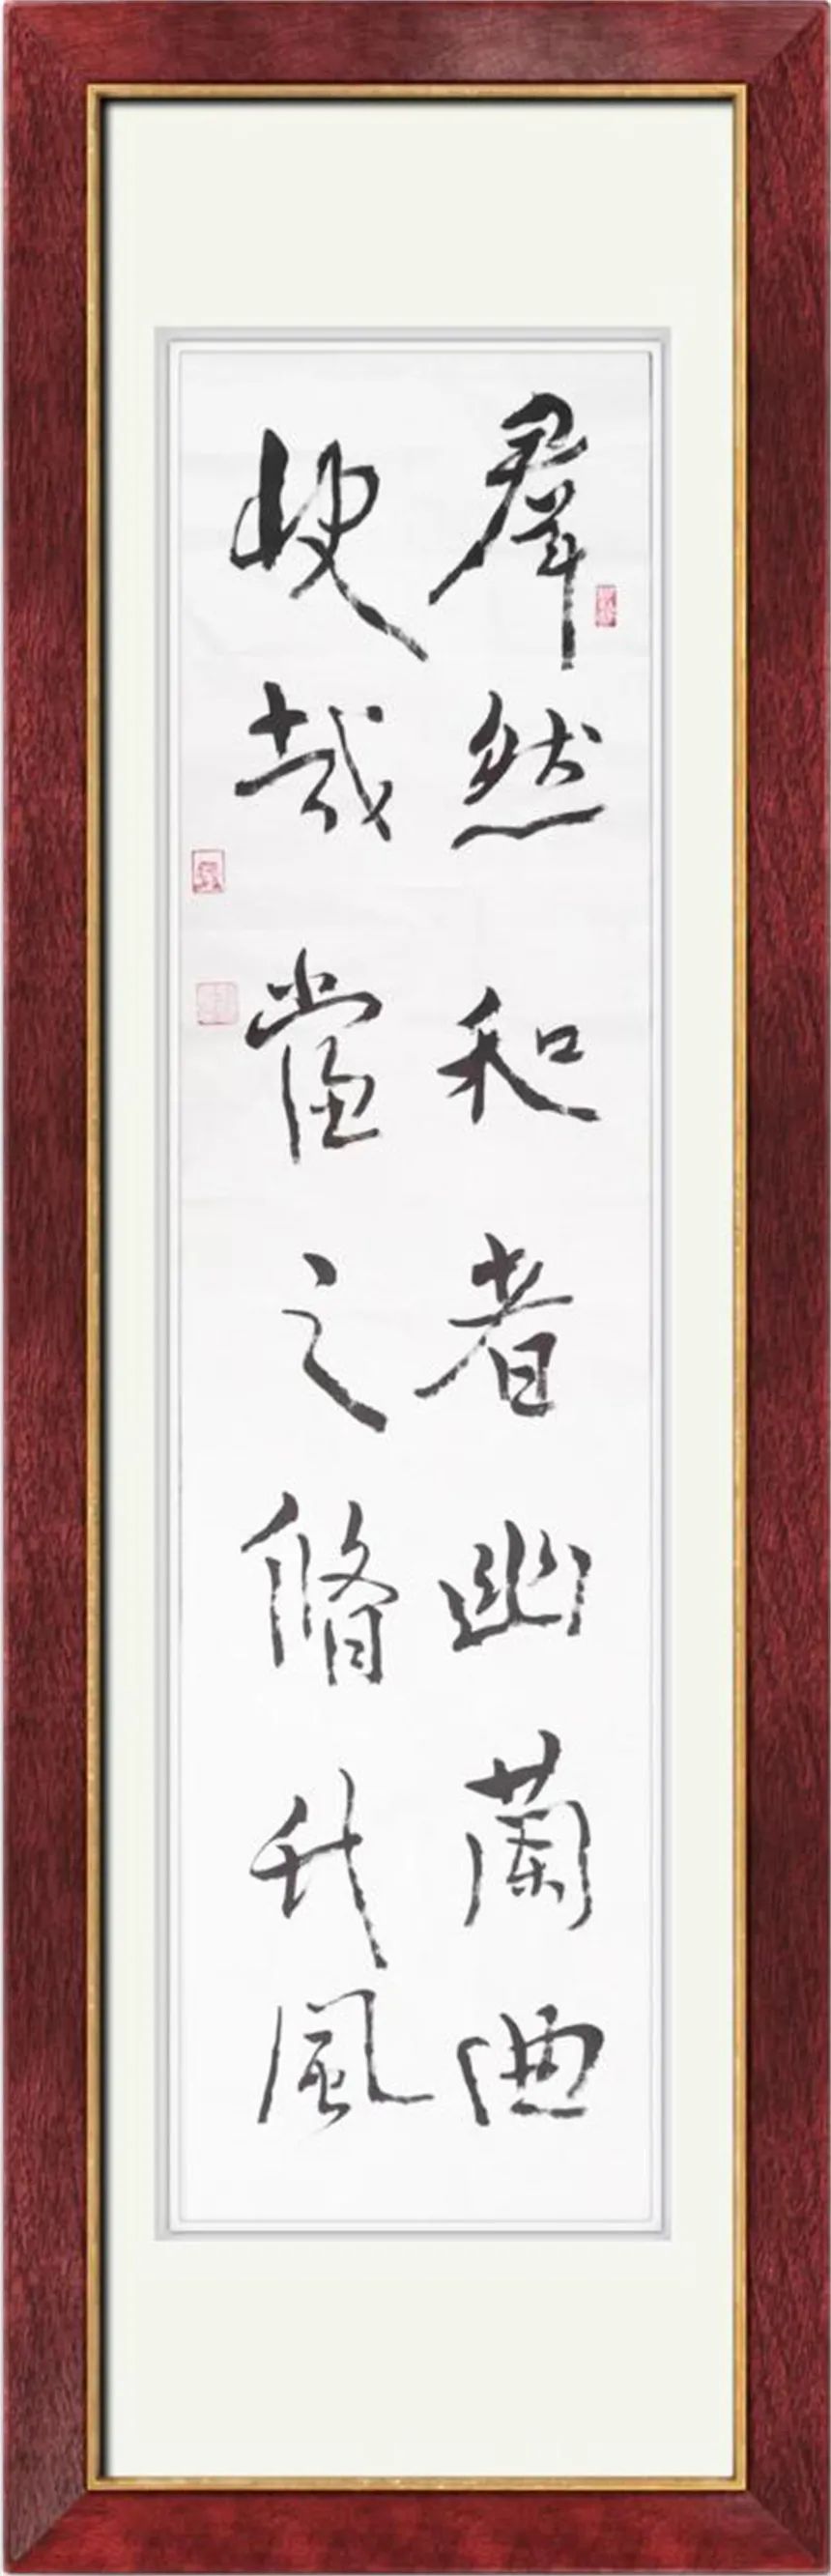 羣然和者幽蘭曲
快哉當之脩竹風